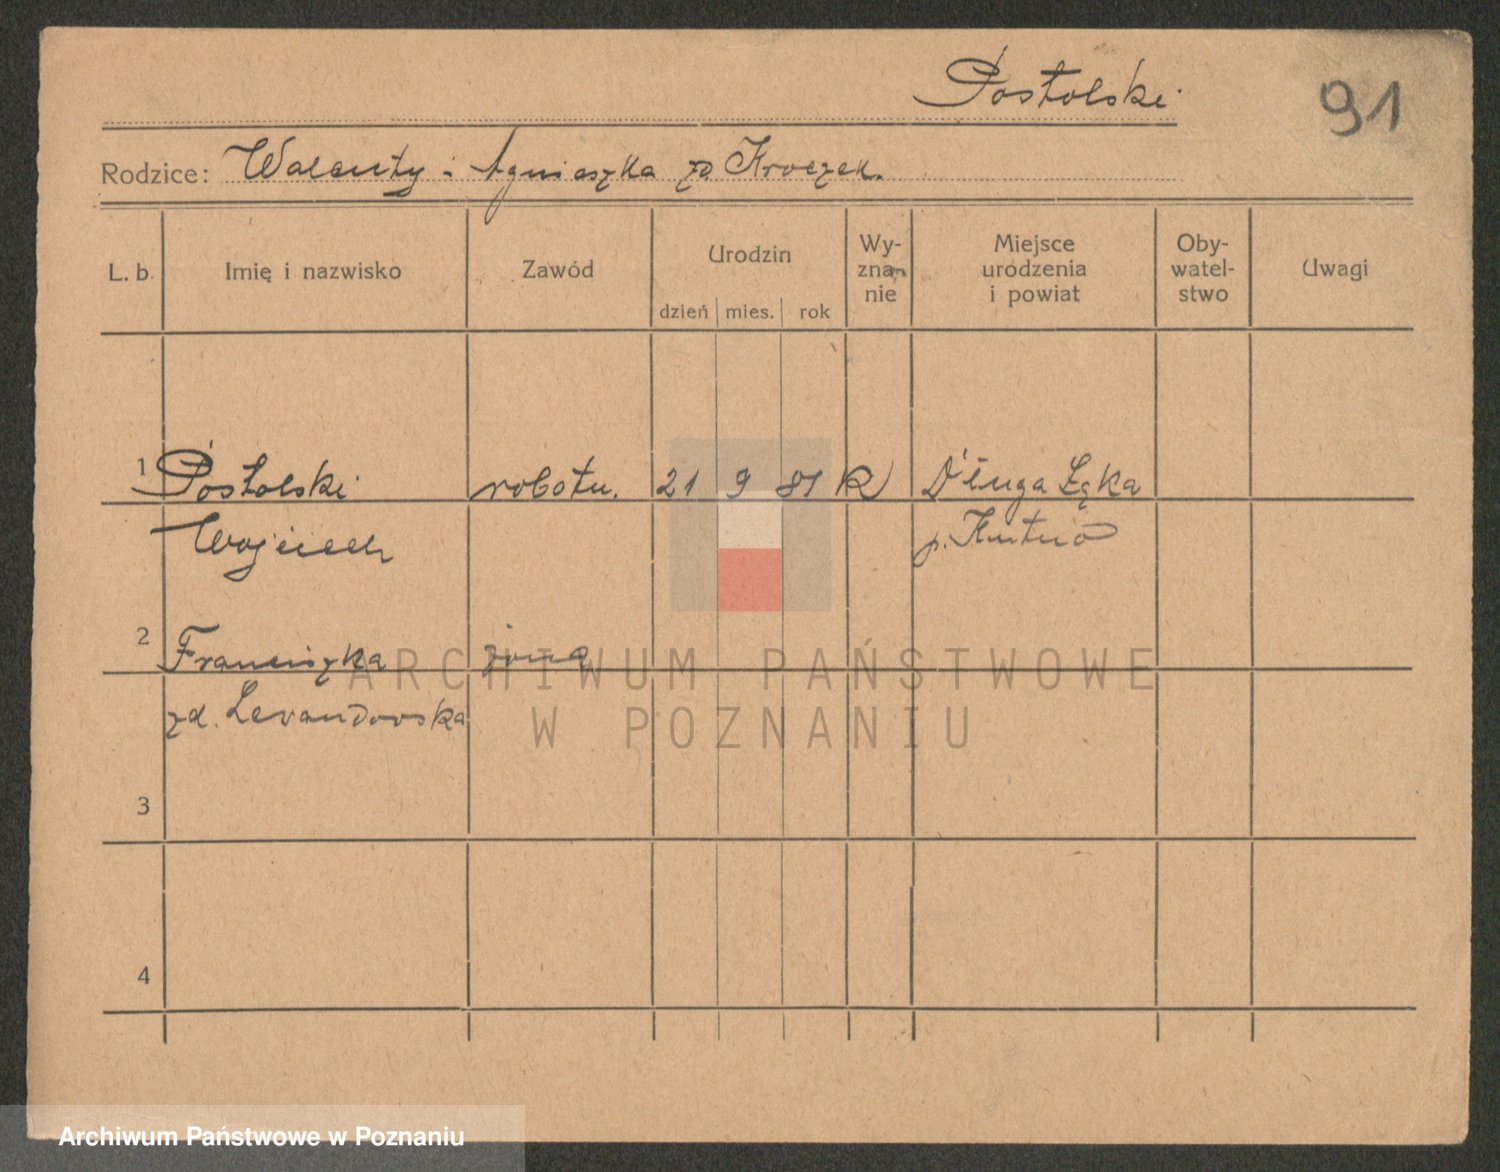 Postolski
91
Rodzice: Walenty i Agnieszka zd Kroczek.
L. b. Imię i nazwisko Zawód Urodzin dzień mies. rok Wy-zna-nie Miejsce urodzenia i powiat Oby-watel-stwo Uwagi
1 Postolski robotn. 21 9 81 K Długa Łąka
Wojciech p. Kutno
2 Franciszka żona
zd. Levandovska
3
4
ARCHIWUM PAŃSTWOWE
W POZNANIU
Archiwum Państwowe w Poznaniu